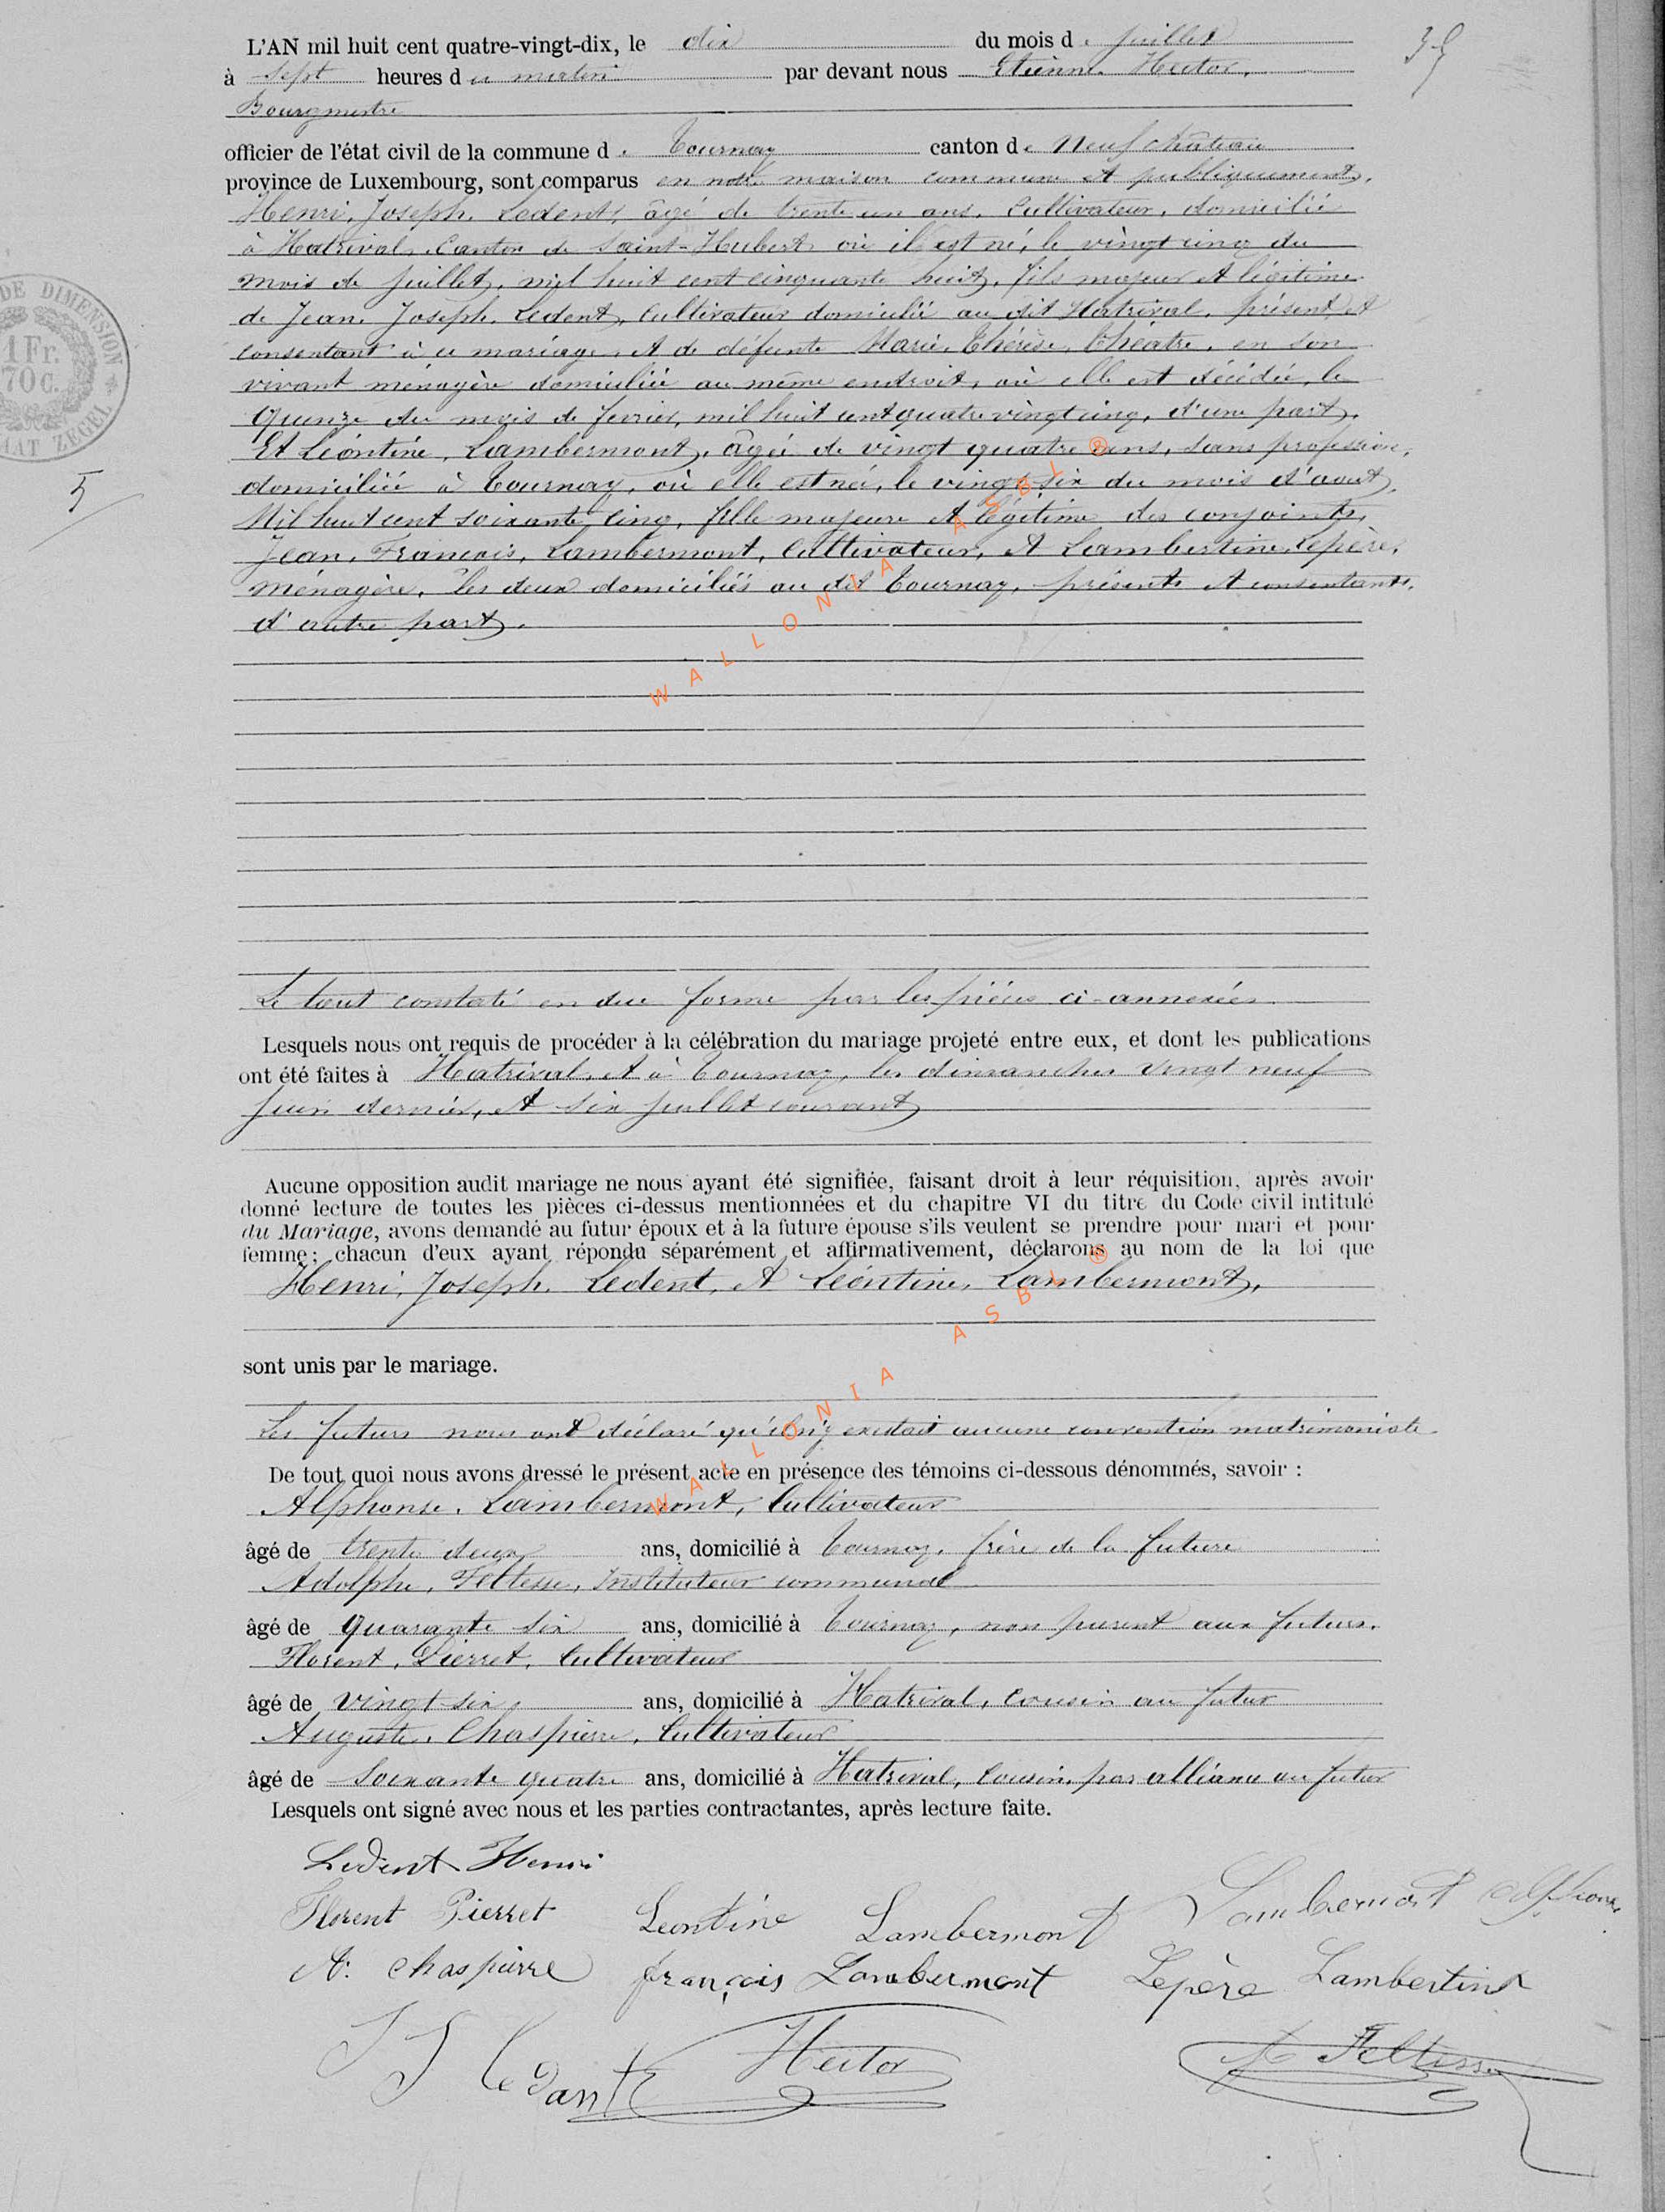 L'AN mil huit cent quatre-vingt-dix, le dix du mois de juillet
à sept heures du matin par devant nous Etienne Hector,
Bourgmestre
officier de l'état civil de la commune de Tournay canton de Neufchâteau
province de Luxembourg, sont comparus en notre maison commune et publiquement,
Henri, Joseph, Ledent, âgé de trente un ans, Cultivateur, domicilié
à Hatrival, Canton de Saint-Hubert où il est né, le vingt cinq du
mois de juillet, mil huit cent cinquante huit, fils majeur et légitime
de Jean, Joseph, Ledent, Cultivateur domicilié au dit Hatrival, présent et
consentant à ce mariage, et de défunte Marie, Thérèse, Théatre, en son
vivant ménagère domiciliée au même endroit, où elle est décédée, le
quinze du mois de fevrier, mil huit cent quatre vingt cinq, d'une part,
Et Léontine, Lambermont, âgée de vingt quatre ans, sans profession,
domiciliée à Tournay, où elle est née, le vingt six du mois d'aout,
Mil huit cent soixante cinq, fille majeure et légitime des conjoints,
Jean, François, Lambermont, Cultivateur, et Lambertine, Lepère,
Ménagère, les deux domiciliés au dit Tournay, présents et consentants,
d'autre part.
Le tout constaté en due forme par les pièces ci-annexées.
Lesquels nous ont requis de procéder à la célébration du mariage projeté entre eux, et dont les publications
ont été faites à Hatrival, et à Tournay, les dimanches vingt neuf
juin dernier, et six juillet courant
Aucune opposition audit mariage ne nous ayant été signifiée, faisant droit à leur réquisition, après avoir
donné lecture de toutes les pièces ci-dessus mentionnées et du chapitre VI du titre du Code civil intitulé
du Mariage, avons demandé au futur époux et à la future épouse s'ils veulent se prendre pour mari et pour
femme; chacun d'eux ayant répondu séparément et affirmativement, déclarons au nom de la loi que
Henri, Joseph, Ledent, et Léontine, Lambermont,
sont unis par le mariage.
Les futurs nous ont déclaré qu'il n'y existait aucune convention matrimoniale.
De tout quoi nous avons dressé le présent acte en présence des témoins ci-dessous dénommés, savoir :
Alphonse, Lambermont, Cultivateur
âgé de trente deux ans, domicilié à Tournay, frère de la future
Adolphe, Feltesse, Instituteur communal
âgé de quarante six ans, domicilié à Tournay, non parent aux futurs.
Florent, Pierret, Cultivateur
âgé de vingt six ans, domicilié à Hatrival, Cousin au futur
Auguste, Chaspierre, Cultivateur
âgé de soixante quatre ans, domicilié à Hatrival, Cousin, par alliance au futur
Lesquels ont signé avec nous et les parties contractantes, après lecture faite.
Ledent Henri
Florent Pierret Leontine Lambermont Lambermont Alphonse
A. Chaspierre françois Lambermont Lepère Lambertine
J J Ledant Hector A Feltesse
DE DIMENSION
1 Fr.
70 c.
ZEGEL
5
WALLONIA ASBL ®
WALLONIA ASBL ®